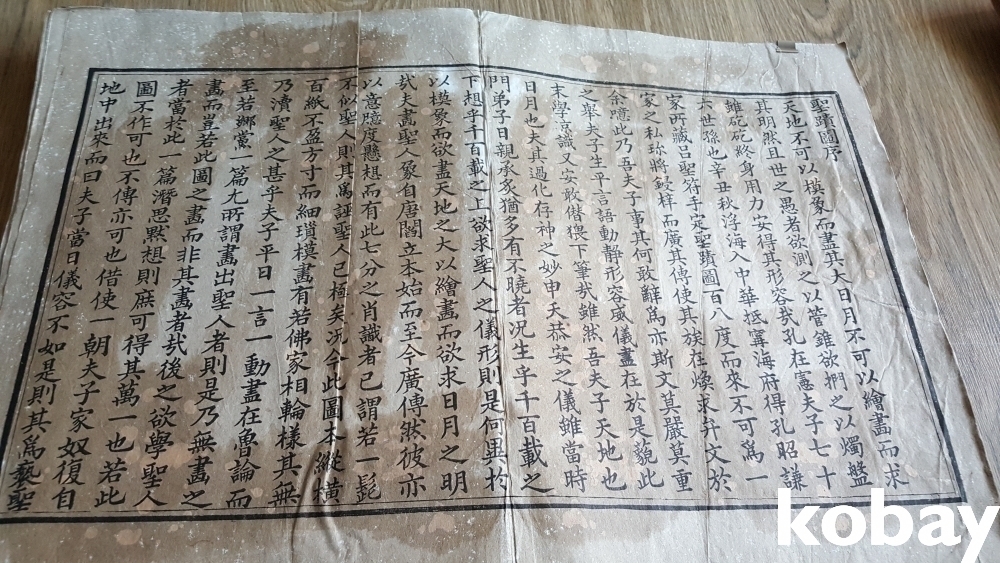 聖蹟圖序
天地不可以模象而盡其大日月不可以繪畫而求
其明然且世之愚者欲測之以管錐欲捫之以燭盤
雖矻矻終身用力安得其形容我孔在憲夫子七十
六世孫也辛丑秋浮海入中華抵寧海府得孔昭謙
家所藏呂聖符手定聖蹟圖百八度而來不可爲一
家之私珎將鋟梓而廣其傳使其族在煥求弁文於
余噫此乃吾夫子事其何敢辭焉亦斯文莫嚴莫重
之舉夫子生平言語動靜形容威儀盡在於是藐此
末學謭識又安敢僣猥下筆㢤雖然吾夫子天地也
日月也夫其過化存神之妙申夭恭安之儀雖當時
門弟子日親承炙猶多有不曉者况生乎千百載之
下想乎千百載之上欲求聖人之儀形則是何異於
以模象而欲盡天地之大以繪畫而欲求日月之明
㢤夫畫聖人象自唐閻立本始而至今廣傳然彼亦
以意度懸想而有此七分之肖識者已謂若一髭
不似聖人則其爲誣聖人已極矣况今此圖本縱橫
百紙不盈方寸而細瑣模畫有若佛家相輪樣其無
乃瀆聖人之甚乎夫子平日一言一動盡在魯論而
至若鄕黨一篇尤所謂畫出聖人者則是乃無畫之
畫而豈若此圖之畫而非其畫者㢤後之欲學聖人
者當於此一篇潛思默想則庶可得其萬一也若此
圖不作可也不傳亦可也借使一朝夫子家奴復自
地中出來而曰夫子當日儀容不如是則其爲褻聖
kobay